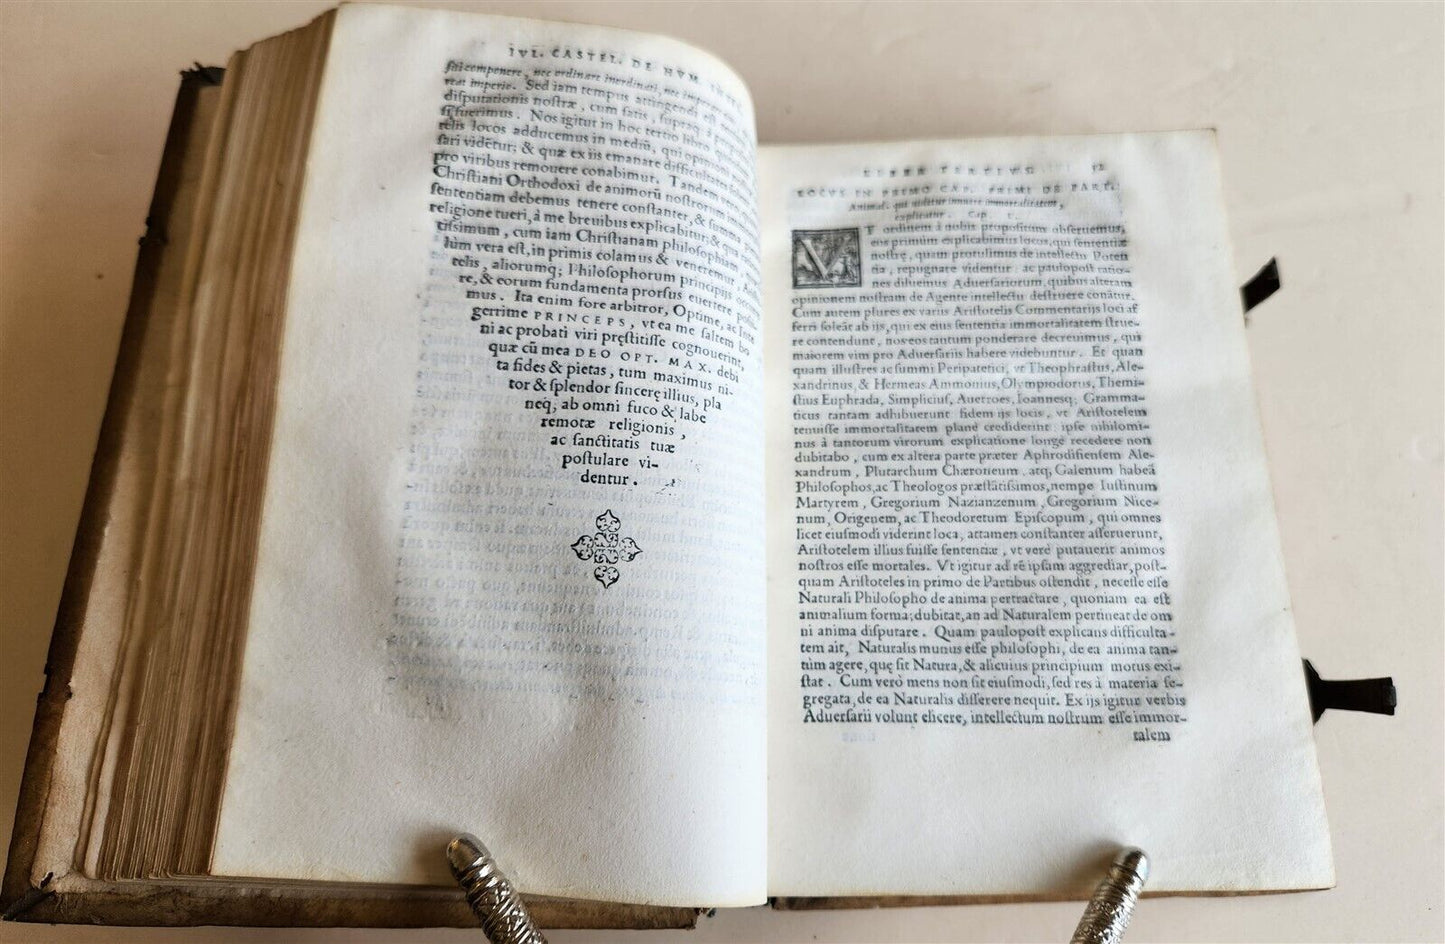 IVL. CASTEL. DE HVM. INTEL.
siti componere, nec ordinare inordinati, nec imperare
reat imperio. Sed iam tempus attingendi est
disputationis nostræ, cum satis, supraq; à
sı̨ fuerimus. Nos igitur in hoc tertio libro
telis locos adducemus in mediũ, qui opinioni
sari vidẽtur; & quæ ex iis emanare difficultates
pro viribus remouere conabimur. Tandem vero,
Christiani Orthodoxi de animorũ nostrorum
sententiam debemus tenere constanter, & summa
religione tueri, à me breuibus explicabitur; & qua
tissimum, cum iam Christianam philosophiam,
lùm vera est, in primis colamus & veneremur,
telis, aliorumq; Philosophorum principijs
re, & eorum fundamenta prorsus euertere
mus. Ita enim fore arbitror, Optime, ac Inte
gerrime PRINCEPS, vt ea me saltem bo
ni ac probati viri pręstitisse cognouerint,
quæ cũ mea DEO OPT. MAX. debi
ta fides & pietas, tum maximus ni-
tor & splendor sincerę illius, pla
neq, ab omni fuco & labe
remotæ religionis,
ac sanctitatis tuæ
postulare vi-
dentur.
LIBER TERTIVS
LOCVS IN PRIMO CAP. PRIMI DE PART.
Animal. qui uidetur innuere immortalitatem,
explicatur. Cap. I.
VT ordinem à nobis propositum obseruemus,
eos primùm explicabimus locos, qui sententiæ
nostrę, quam protulimus de intellectu Poten
tia, repugnare videntur: ac paulopost ratio-
nes diluemus Aduersariorum, quibus alteram
opinionem nostram de Agente intellectu destruere conãtur.
Cum autem plures ex variis Aristotelis Commentarijs loci af
ferri soleãt ab ijs, qui ex eius sententia immortalitatem strue-
re contendunt, nos eos tantum ponderare decreuimus, qui
maiorem vim pro Aduersariis habere videbuntur. Et quan
quam illustres ac summi Peripatetici, vt Theophrastus, Ale-
xandrinus, & Hermeas Ammonius, Olympiodorus, Themi-
stius Euphrada, Simplicius, Auerroes, Ioannesq; Gramma-
ticus tantam adhibuerunt fidem ijs locis, vt Aristotelem
tenuisse immortalitatem planè crediderint: ipse nihilomi-
nus à tantorum virorum explicatione longè recedere non
dubitabo, cum ex altera parte præter Aphrodisiensem Ale-
xandrum, Plutarchum Chæroneum, atq; Galenum habeã
Philosophos, ac Theologos præstãtissimos, nempe Iustinum
Martyrem, Gregorium Nazianzenum, Gregorium Nice-
num, Origenem, ac Theodoretum Episcopum, qui omnes
licet eiusmodi viderint loca, attamen constanter asseruerunt,
Aristotelem illius fuisse sententiæ, vt verè putauerit animos
nostros esse mortales. Vt igitur ad rẽ ipsam aggrediar, post-
quam Aristoteles in primo de Partibus ostendit, necesse esse
Naturali Philosopho de anima pertractare, quoniam ea est
animalium forma; dubitat, an ad Naturalem pertineat de om
ni anima disputare. Quam paulopost explicans difficulta-
tem ait, Naturalis munus esse philosophi, de ea anima tan-
tùm agere, quę sit Natura, & alicuius principium motus exi-
stat. Cum verò mens non sit eiusmodi, sed res à materia se-
gregata, de ea Naturalis disserere nequit. Ex ijs igitur verbis
Aduersarii volunt elicere, intellectum nostrum esse immor-
talem